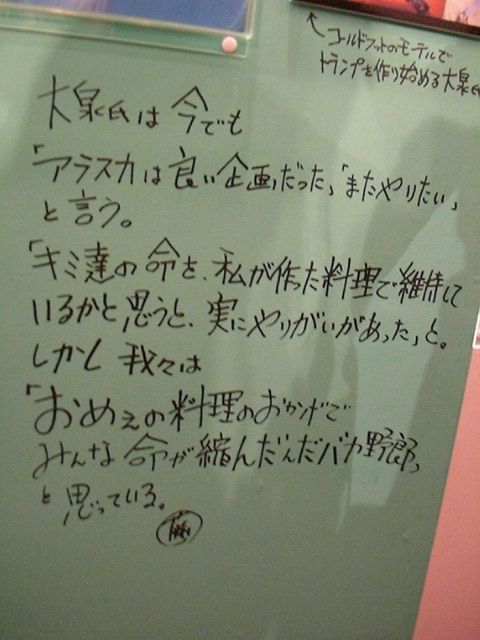 ←ゴールドフットのモーテルで
トランプを作り始める大泉氏
大泉氏は今でも
「アラスカは良い企画だった」「またやりたい」
と言う。
「キミ達の命を、私が作った料理で維持して
いるかと思うと、実にやりがいがあった」と。
しかし我々は
「おめぇの料理のおかげで
みんな命が縮んだんだバカ野郎」
と思っている。
藤